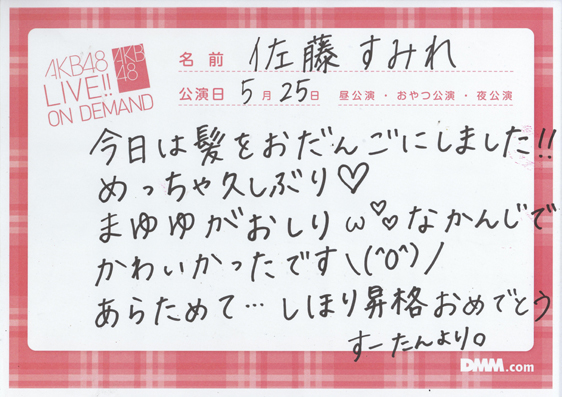 AKB48
LIVE!!
ON DEMAND
AKB
48
名前 佐藤すみれ
公演日 5月25日 昼公演・おやつ公演・夜公演
今日は髪をおだんごにしました!!
めっちゃ久しぶり♡
まゆゆがおしりω♡♡なかんじで
かわいかったです\(^O^)/
あらためて…しほり昇格おめでとう
すーたんより。
DMM.com